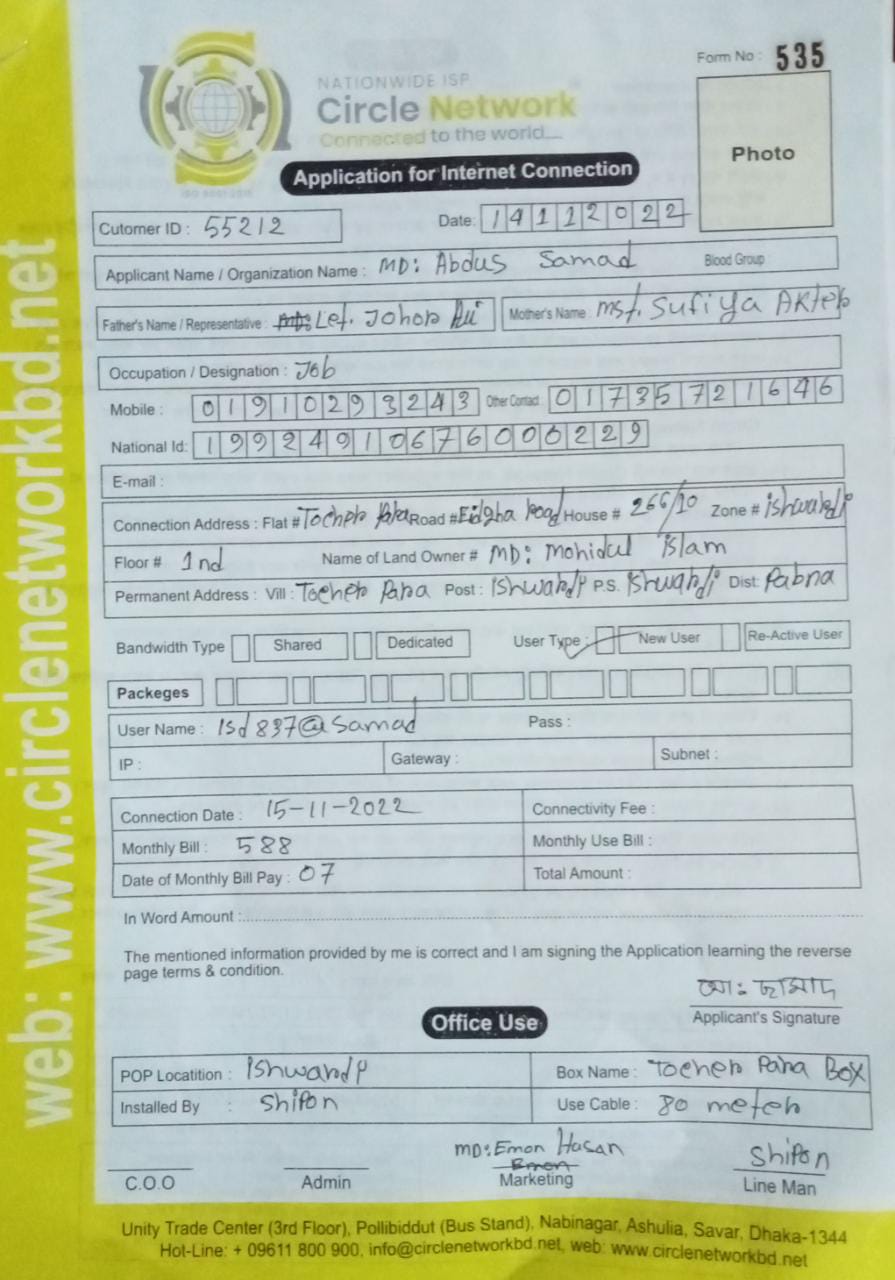 Form No : 535
NATIONWIDE ISP
Circle Network
Connected to the world...
ISO 9001:2015
Photo
Application for Internet Connection
Cutomer ID : 55212 Date: 14112022
Applicant Name / Organization Name : MD: Abdus Samad Blood Group
Father's Name / Representative : Let. Johor Ali Mother's Name : Mst. Sufiya Akter
Occupation / Designation : Job
Mobile : 01910293243 Other Contact : 01735721646
National Id: 19924910676000229
E-mail :
Connection Address : Flat # Tocher Para Road # Eidgha Road House # 266/10 Zone # ishwardi
Floor # 1nd Name of Land Owner # MD: Mohidul islam
Permanent Address : Vill : Tocher Para Post : ishwardi P.S. ishwardi Dist: Pabna
Bandwidth Type Shared Dedicated User Type : New User Re-Active User
Packeges
User Name : Isd837@Samad Pass :
IP : Gateway : Subnet :
Connection Date : 15-11-2022 Connectivity Fee :
Monthly Bill : 588 Monthly Use Bill :
Date of Monthly Bill Pay : 07 Total Amount :
In Word Amount :
The mentioned information provided by me is correct and I am signing the Application learning the reverse
page terms & condition.
মো: ছামাদ
Applicant's Signature
Office Use
POP Locatition : Ishwardi Box Name : Tocher Para Box
Installed By : Shipon Use Cable : 80 meter
MD: Emon Hasan Shipon
C.O.O Admin Marketing Line Man
Unity Trade Center (3rd Floor), Pollibiddut (Bus Stand), Nabinagar, Ashulia, Savar, Dhaka-1344
Hot-Line: + 09611 800 900, info@circlenetworkbd.net, web: www.circlenetworkbd.net
web: www.circlenetworkbd.net